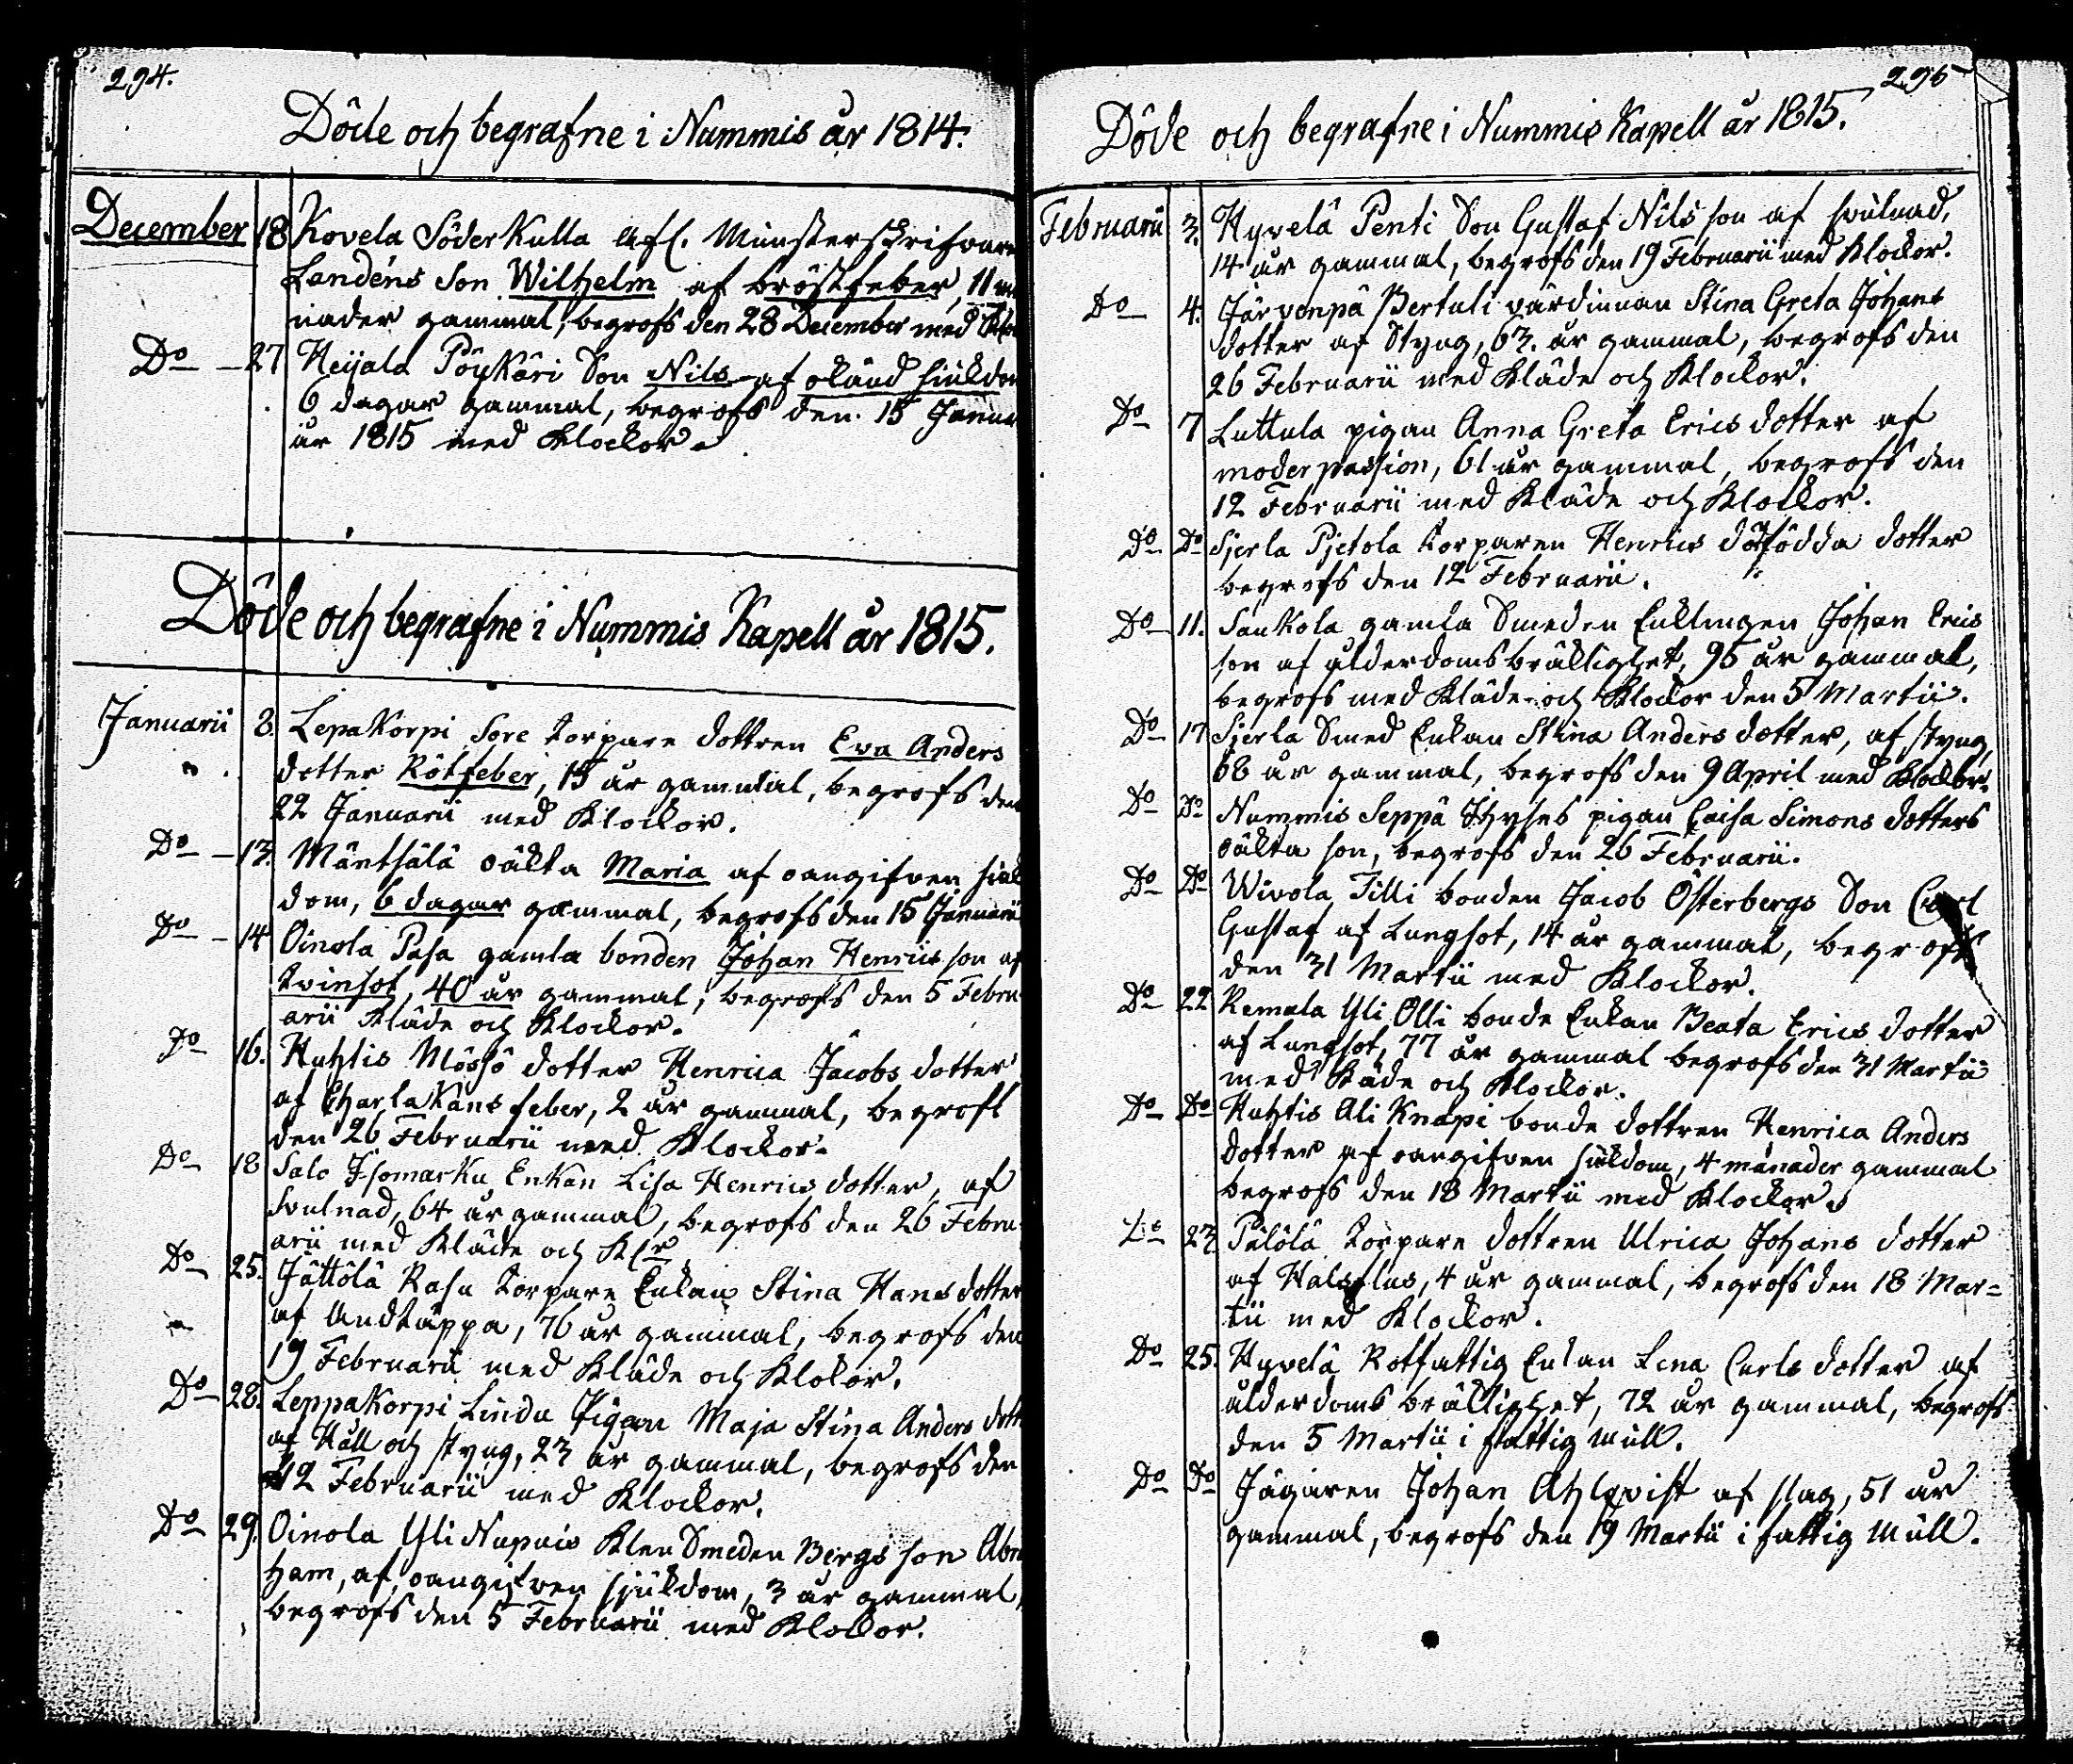 294.
Döde och begrafne i Nummis år 1814.
December 18 Kovela Söderkulla afl. Munsterskrifvare
Landéns Son Wilhelm af bröstfeber, 11 må
nader gammal, begrofs den 28 December med
Do 27 Heijala Pöykäri Son Nils af okänd siukdom
6 dagar gammal, begrofs den 15 Januar
år 1815 med Klockor
Döde och begrafne i Nummis Kapell år 1815.
Januarii 8. Lepakorpi Sore torpare dottren Eva Anders
dotter Rötfeber, 15 år gammal, begrofs den
22 Januarii med Klockor.
Do 13. Mäntsälä oäkta Maria af oangifven siuk
dom, 6 dagar gammal, begrofs den 15 Januarii
Do 14 Oinola Pasa gamla bonden Johan Henrics son af
tvinsot, 40 år gammal, begrofs den 5 Febru
arii Kläde och Klockor.
Do 16. Huhtis Mössö dotter Henrica Jacobs dotter
af Charlakans feber, 2 år gammal, begrofs
den 26 Februarii med Klockor.
Do 18 Salo Isomarku Enkan Lisa Henrics dotter, af
Svulnad, 64 år gammal, begrofs den 26 Febru
arii med Kläde och Klr
Do 25. Jättölä Rasu torpare Enkan Stina Hans dotter
af Andtäppa, 76 år gammal, begrofs den
19 Februarii med Kläde och Klokor.
Do 28. Leppakorpi Lindu Pigan Maja Stina Anders dott
af Håll och styng, 23 år gammal, begrofs den
12 Februarii med Klockor.
Do 29. Oinola Yli Nupais Klen Smeden Bergs son Abra
ham, af oangifven sjukdom, 3 år gammal,
begrofs den 5 Februarii med Klockor.
295
Döde och begrafne i Nummis Kapell år 1815.
Februarii 3. Hyvelä Penti Son Gustaf Nils son af svulnad,
14 år gammal, begrofs den 19 Februarii med Klockor.
Do 4. Järvenpä Bertuli värdinnan Stina Greta Johans
dotter af Styng, 63. år gammal, begrofs den
26 Februarii med Kläde och Klockor.
Do 7 Luttula pigan Anna Greta Erics dotter af
moderpassion, 61 år gammal, begrofs den
12 Februarii med Kläde och Klockor.
Do Do Sierla Pjetola torparen Henrics dödfödda dotter
begrofs den 12 Februarii.
Do 11. Saukola gamla Smeden Enklingen Johan Erics
son af ålderdomsbräklighet, 95 år gammal,
begrofs med Kläde och Klockor den 5 Martii.
Do 17 Sierla Smed Enkan Stina Anders dotter, af styng,
68 år gammal, begrofs den 9 April med Klockor.
Do Do Nummis Seppä Hyses pigan Caisa Simons dotters
oäkta son, begrofs den 26 Februarii.
Do Do Wivola Tilli bonden Jacob Österbergs Son Carl
Gustaf af Lungsot, 14 år gammal, begrofs
den 31 Martii med Klockor.
Do 22 Remala Yli Olli bonde Enkan Beata Erics dotter
af Lungsot, 77 år gammal begrofs den 31 Martii
med Kläde och Klockor.
Do Do Huhtis Ali Knapi bonde dottren Henrica Anders
dotter af oangifven siukdom, 4 månader gammal
begrofs den 18 Martii med Klockor
Do 23 Pälölä torpare dottren Ulrica Johans dotter
af Halsflus, 4 år gammal, begrofs den 18 Mar=
tii med Klockor.
Do 25. Hyvelä Rotfattig Enkan Lena Carls dotter af
ålderdoms bräklighet, 72 år gammal, begrofs
den 5 Martii i fattig mull.
Do Do Jägaren Johan Ahlqvist af slag, 51 år
gammal, begrofs den 19 Martii i fattig mull.